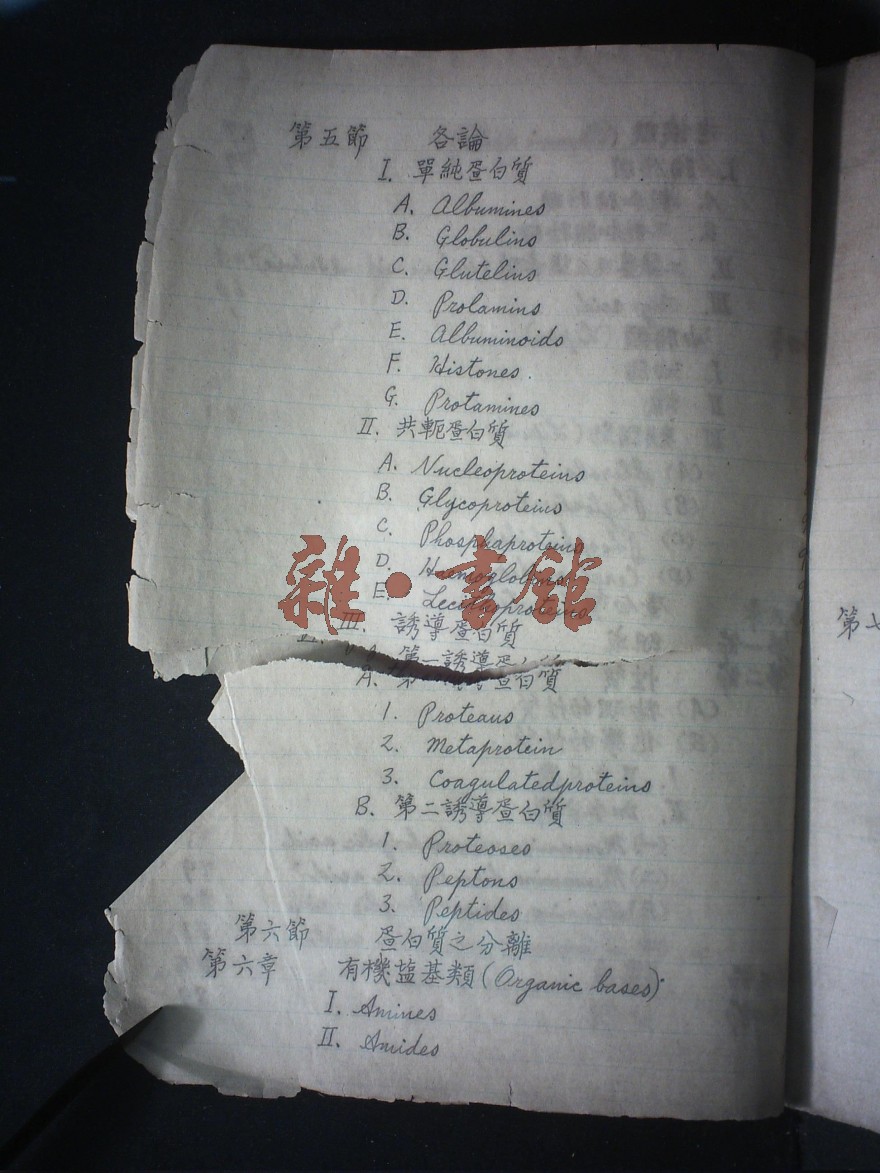 第五節 各論
I. 單純蛋白質
A. Albumines
B. Globulins
C. Glutelins
D. Prolamins
E. Albuminoids
F. Histones.
G. Protamines
II. 共軛蛋白質
A. Nucleoproteins
B. Glycoproteins
C. Phosphaproteins
D. Haemoglobins
E. Lecithoproteins
III. 誘導蛋白質
A. 第一誘導蛋白質
1. Proteaus
2. Metaprotein
3. Coagulatedproteins
B. 第二誘導蛋白質
1. Proteoses
2. Peptons
3. Peptides
第六節 蛋白質之分離
第六章 有機塩基類(Organic bases)
I. Amines
II. Amides
第七
雜·書館